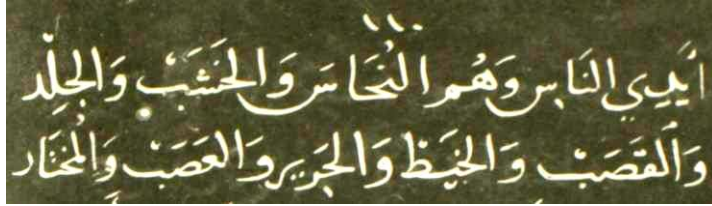 ١١٠
ايدي الناس وهم النحاس والخشب والجلد
والقصب والخيط والحرير والعصب والمختار